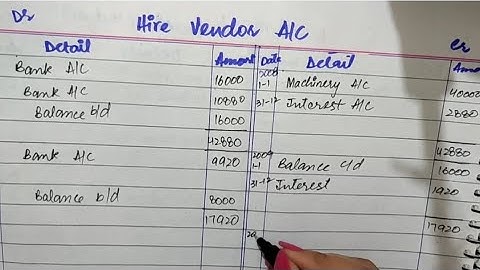 Dr Hire Vendor A/C cr
Detail Amount Date Detail Amo
Bank A/C 16000 2008 1-1 Machinery A/C 40000
Bank A/C 10880 31-12 Interest A/C 2880
Balance b/d 16000
42880 42880
Bank A/C 9920 2009 1-1 Balance c/d 16000
31-12 Interest 1920
Balance b/d 8000
17920 17920
20